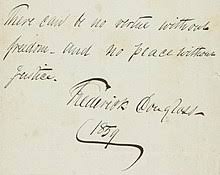 There can be no virtue without
freedom - and no peace without
justice.
Frederick Douglass -
1859